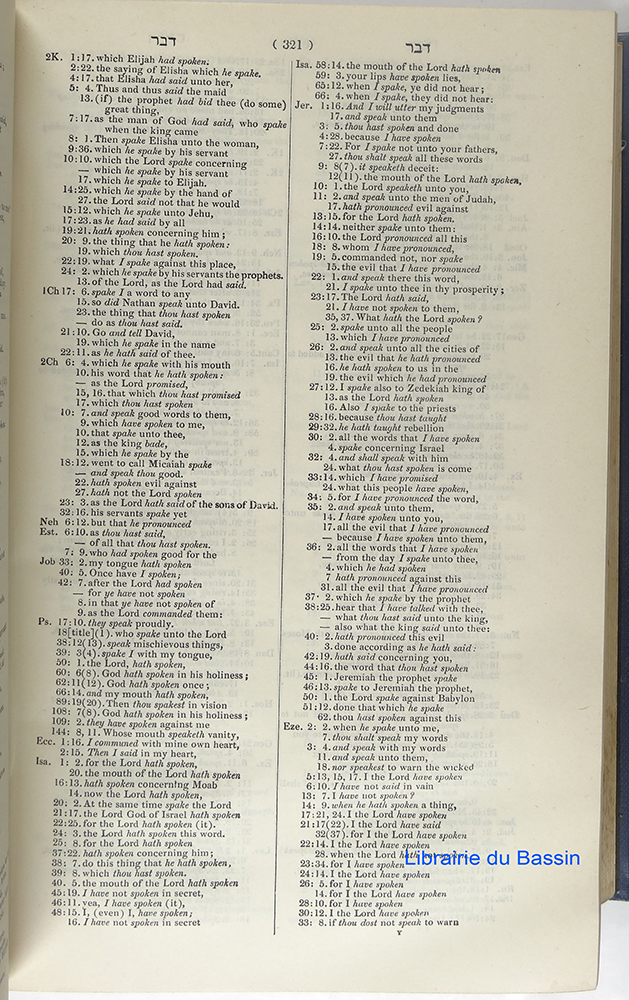 דבר
( 321 )
דבר
2K. 1:17. which Elijah had spoken.
2:22. the saying of Elisha which he spake.
4:17. that Elisha had said unto her,
5: 4. Thus and thus said the maid
13. (if) the prophet had bid thee (do some)
great thing,
7:17. as the man of God had said, who spake
when the king came
8: 1. Then spake Elisha unto the woman,
9:36. which he spake by his servant
10:10. which the Lord spake concerning
— which he spake by his servant
17. which he spake to Elijah.
14:25. which he spake by the hand of
27. the Lord said not that he would
15:12. which he spake unto Jehu,
17:23. as he had said by all
19:21. hath spoken concerning him ;
20: 9. the thing that he hath spoken:
19. which thou hast spoken.
22:19. what I spake against this place,
24: 2. which he spake by his servants the prophets.
13. of the Lord, as the Lord had said.
1Ch 17: 6. spake I a word to any
15. so did Nathan speak unto David.
23. the thing that thou hast spoken
— do as thou hast said.
21:10. Go and tell David,
19. which he spake in the name
22:11. as he hath said of thee.
2Ch 6: 4. which he spake with his mouth
10. his word that he hath spoken:
— as the Lord promised,
15, 16. that which thou hast promised
17. which thou hast spoken
10: 7. and speak good words to them,
9. which have spoken to me,
10. that spake unto thee,
12. as the king bade,
15. which he spake by the
18:12. went to call Micaiah spake
— and speak thou good.
22. hath spoken evil against
27. hath not the Lord spoken
23: 3. as the Lord hath said of the sons of David.
32:16. his servants spake yet
Neh 6:12. but that he pronounced
Est. 6:10. as thou hast said,
— of all that thou hast spoken.
7: 9. who had spoken good for the
Job 33: 2. my tongue hath spoken
40: 5. Once have I spoken;
42: 7. after the Lord had spoken
— for ye have not spoken
8. in that ye have not spoken of
9. as the Lord commanded them:
Ps. 17:10. they speak proudly.
18[title](1). who spake unto the Lord
38:12(13). speak mischievous things,
39: 3(4). spake I with my tongue,
50: 1. the Lord, hath spoken,
60: 6(8). God hath spoken in his holiness ;
62:11(12). God hath spoken once ;
66:14. and my mouth hath spoken,
89:19(20). Then thou spakest in vision
108: 7(8). God hath spoken in his holiness ;
109: 2. they have spoken against me
144: 8, 11. Whose mouth speaketh vanity,
Ecc. 1:16. I communed with mine own heart,
2:15. Then I said in my heart,
Isa. 1: 2. for the Lord hath spoken,
20. the mouth of the Lord hath spoken
16:13. hath spoken concerning Moab
14. now the Lord hath spoken,
20: 2. At the same time spake the Lord
21:17. the Lord God of Israel hath spoken
22:25. for the Lord hath spoken (it).
24: 3. the Lord hath spoken this word.
25: 8. for the Lord hath spoken
37:22. hath spoken concerning him ;
38: 7. do this thing that he hath spoken,
39: 8. which thou hast spoken.
40. 5. the mouth of the Lord hath spoken
45:19. I have not spoken in secret,
46:11. yea, I have spoken (it),
48:15. I, (even) I, have spoken;
16. I have not spoken in secret
Isa. 58:14. the mouth of the Lord hath spoken
59: 3. your lips have spoken lies,
65:12. when I spake, ye did not hear ;
66: 4. when I spake, they did not hear:
Jer. 1:16. And I will utter my judgments
17. and speak unto them
3: 5. thou hast spoken and done
4:28. because I have spoken
7:22. For I spake not unto your fathers,
27. thou shalt speak all these words
9: 8(7). it speaketh deceit:
12(11). the mouth of the Lord hath spoken,
10: 1. the Lord speaketh unto you,
11: 2. and speak unto the men of Judah,
17. hath pronounced evil against
13:15. for the Lord hath spoken.
14:14. neither spake unto them:
16:10. the Lord pronounced all this
18: 8. whom I have pronounced,
19: 5. commanded not, nor spake
15. the evil that I have pronounced
22: 1. and speak there this word,
21. I spake unto thee in thy prosperity ;
23:17. The Lord hath said,
21. I have not spoken to them,
35, 37. What hath the Lord spoken ?
25: 2. spake unto all the people
13. which I have pronounced
26: 2. and speak unto all the cities of
13. the evil that he hath pronounced
16. he hath spoken to us in the
19. the evil which he had pronounced
27:12. I spake also to Zedekiah king of
13. as the Lord hath spoken
16. Also I spake to the priests
28:16. because thou hast taught
29:32. he hath taught rebellion
30: 2. all the words that I have spoken
4. spake concerning Israel
32: 4. and shall speak with him
24. what thou hast spoken is come
33:14. which I have promised
24. what this people have spoken,
34: 5. for I have pronounced the word,
35: 2. and speak unto them,
14. I have spoken unto you,
17. all the evil that I have pronounced
— because I have spoken unto them,
36: 2. all the words that I have spoken
— from the day I spake unto thee,
4. which he had spoken
7 hath pronounced against this
31. all the evil that I have pronounced
37· 2. which he spake by the prophet
38:25. hear that I have talked with thee,
— what thou hast said unto the king,
— also what the king said unto thee:
40: 2. hath pronounced this evil
3. done according as he hath said:
42:19. hath said concerning you,
44:16. the word that thou hast spoken
45: 1. Jeremiah the prophet spake
46:13. spake to Jeremiah the prophet,
50: 1. the Lord spake against Babylon
51:12. done that which he spake
62. thou hast spoken against this
Eze. 2: 2. when he spake unto me,
7. thou shalt speak my words
3: 4. and speak with my words
11. and speak unto them,
18. nor speakest to warn the wicked
5:13, 15, 17. I the Lord have spoken
6:10. I have not said in vain
13: 7. I have not spoken ?
14: 9. when he hath spoken a thing,
17:21, 24. I the Lord have spoken
21:17(22). I the Lord have said
32(37). for I the Lord have spoken
22:14. I the Lord have spoken
28. when the Lord
23:34. for I have
24:14. I the Lord have spoken
26: 5. for I have spoken
14. for I the Lord have spoken
28:10. for I have spoken
30:12. I the Lord have spoken
33: 8. if thou dost not speak to warn
Y
Librairie du Bassin